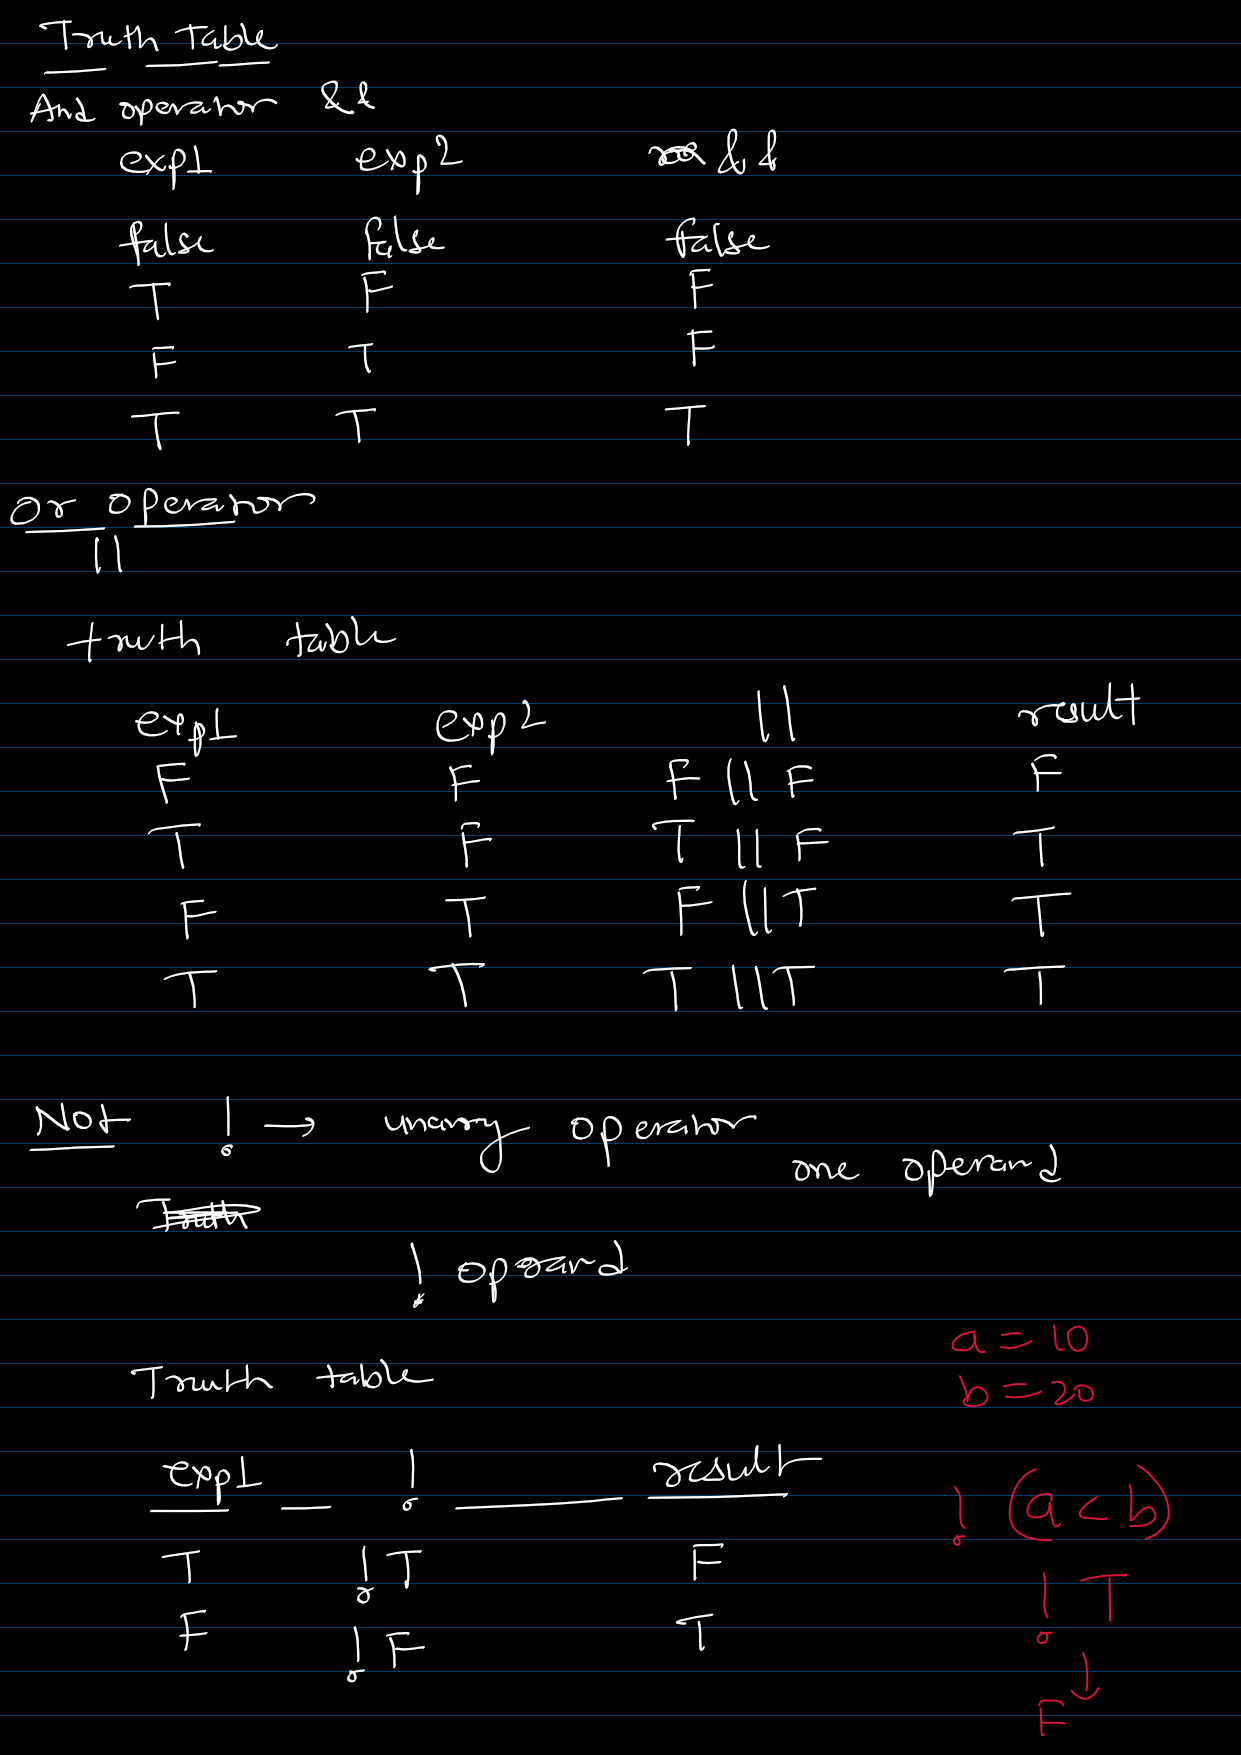 Truth Table
And operator &&
exp1 exp2 &&
false false false
T F F
F T F
T T T
Or Operator
||
truth table
exp1 exp2 || result
F F F || F F
T F T || F T
F T F || T T
T T T || T T
Not ! → unary operator
one operand
Truth
! operand
a = 10
Truth table
b = 20
exp1 ! result
! (a < b)
T !T F
! T
F !F T
F